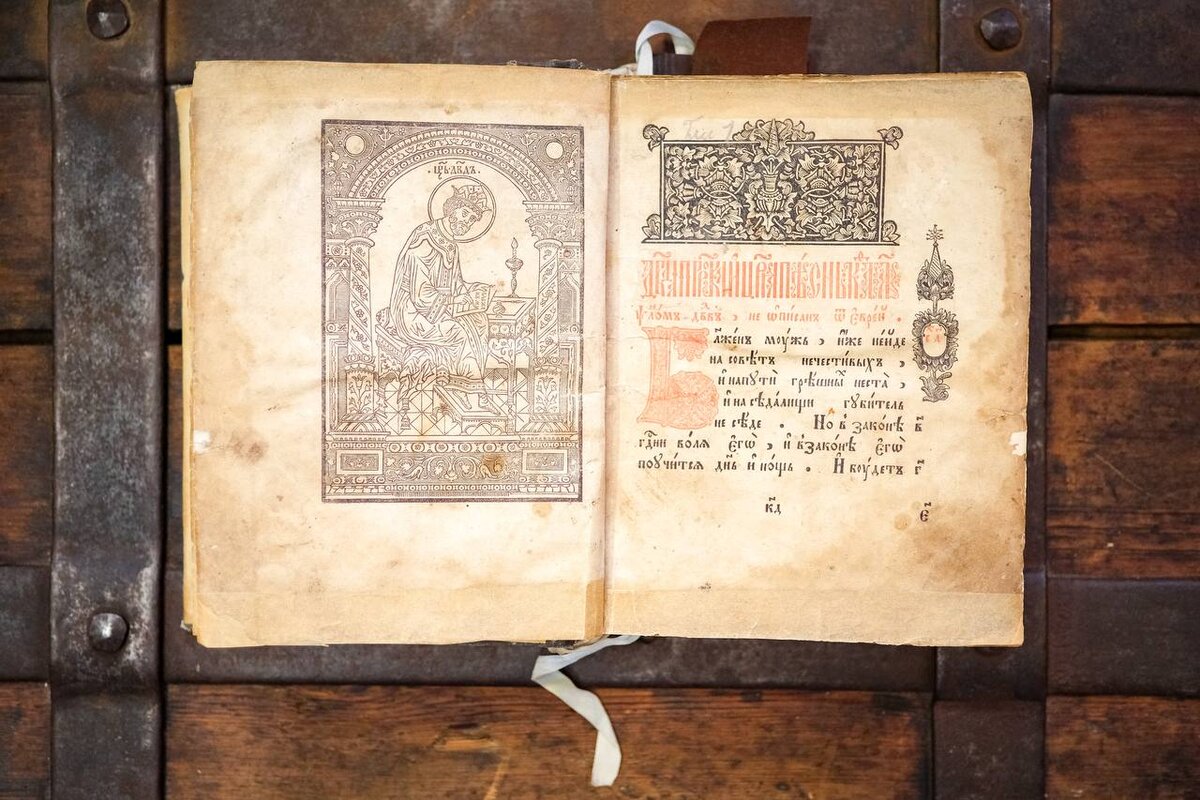 .Црь҃.Дв҃дъ.
ѱл҃омъ дв҃въ , не ѡписанъ ѿ еврей .
Блаже́нъ моужь , и́же не и́де
на совѣ́тъ нечести́выхъ ,
и҆ напꙋтѝ грѣ́шныⷯ не ста̀ ,
и҆ на сѣда́лищи гꙋби́тель
не сѣ́де . Но в̾ зако́нѣ в҃
гдⷭ҇ни во́лѧ є҆гѡ̀ , и҆ в̾зако́нѣ є҆гѡ̀
поꙋчи́тсѧ дн҃ь и҆ но́щь . И҆ боу́детъ г҃
к҃д
є҃